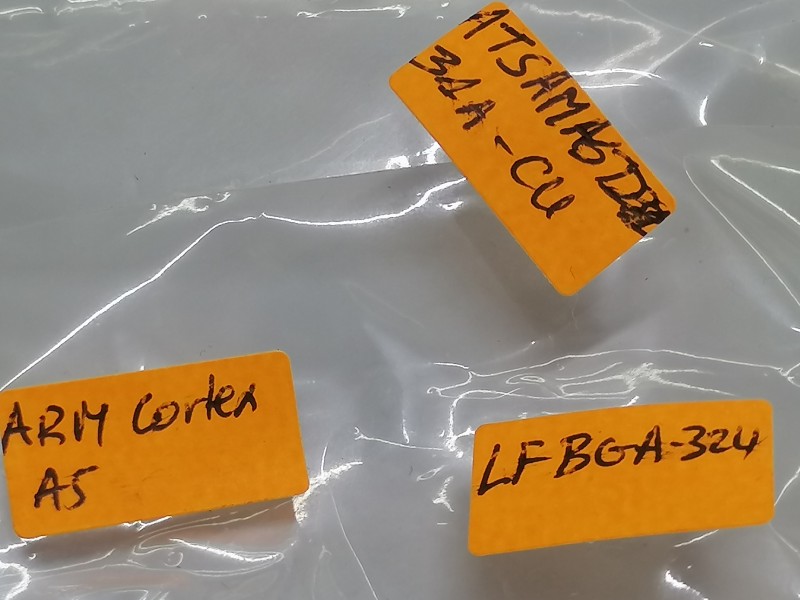 ATSAMA5D
34A-CU
ARM Cortex
A5
LFBGA-324